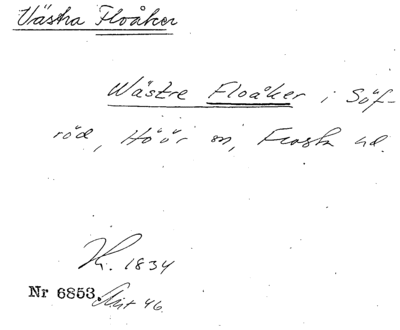 Västra Floåker
Wästre Floåker i Söf-
röd, Höör sn, Frosta hd.
1834
Nr 6853.